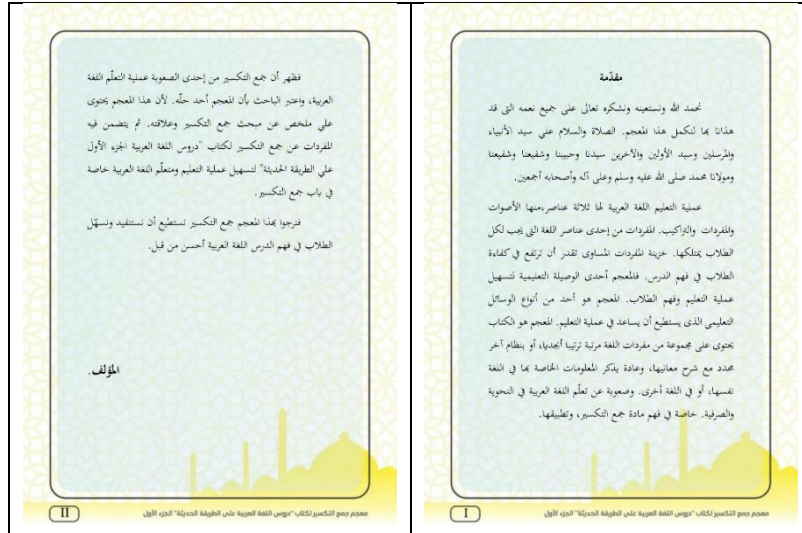 مقدّمة
نحمد الله ونستعينه ونشكره تعالى على جميع نعمه التى قد
هذانا بها لنكمل هذا المعجم. الصلاة والسلام علي سيد الأنبياء
والمرسلين وسيد الأولين والآخرين سيدنا وحبيبنا وشفيعنا وشفيعنا
ومولانا محمد صلى الله عليه وسلم وعلى آله وأصحابه أجمعين.
عملية التعليم اللغة العربية لها ثلاثة عناصر،منها الأصوات
والمفردات والتراكيب. المفردات من إحدى عناصر اللغة التى يجب لكل
الطلاب يمتلكها. خزينة المفردات المساوى تقدر أن ترتفع في كفاءة
الطلاب في فهم الدرس. فالمعجم أحدى الوصيلة التعليمية لتسهيل
عملية التعليم وفهم الطلاب. المعجم هو أحد من أنواع الوسائل
التعليمى الذى يستطيع أن يساعد في عملية التعليم. المعجم هو الكتاب
يحتوى على مجموعة من مفردات اللغة مرتبة ترتيبا أبجديا، أو بنظام آخر
محدد مع شرح معانيها، وعادة يذكر المعلومات الخاصة بها في اللغة
نفسها، أو في اللغة أخرى. وصعوبة عن تعلّم اللغة العربية في النحوية
والصرفية. خاصة في فهم مادة جمع التكسير، وتطبيقها.
معجم جمع التكسير لكتاب "دروس اللغة العربية على الطريقة الحديثة" الجزء الأول
I
فظهر أن جمع التكسير من إحدى الصعوبة عملية التعلّم اللغة
العربية، واعتبر الباحث بأن المعجم أحد حلّه. لأن هذا المعجم يحتوى
علي ملخص عن مبحث جمع التكسير وعلاقته. ثم يتضمن فيه
المفردات عن جمع التكسير لكتاب "دروس اللغة العربية الجزء الأول
علي الطريقة الحديثة" لتسهيل عملية التعليم ومتعلّم اللغة العربية خاصة
في باب جمع التكسير.
فنرجوا بهذا المعجم جمع التكسير نستطيع أن نستفيد ونسهّل
الطلاب في فهم الدرس اللغة العربية أحسن من قبل.
المؤلف.
معجم جمع التكسير لكتاب "دروس اللغة العربية على الطريقة الحديثة" الجزء الأول
II